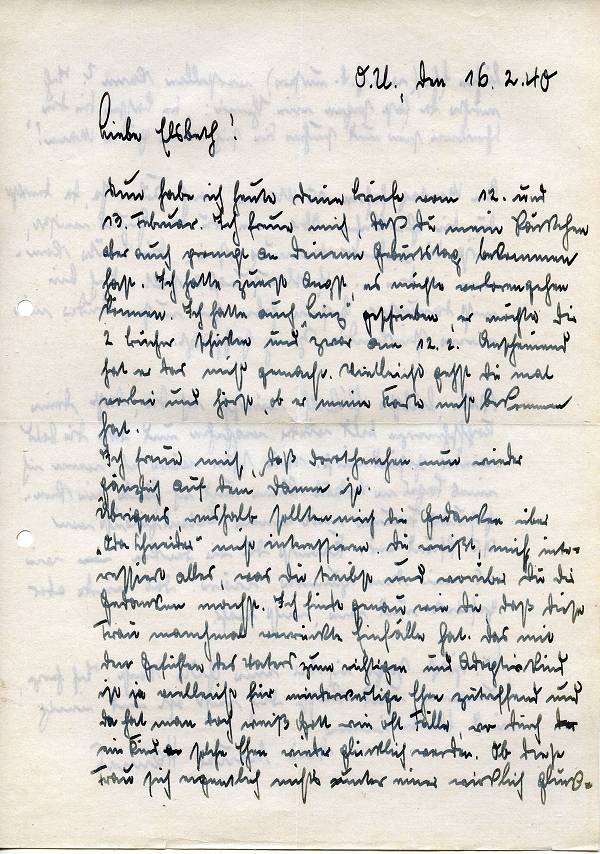 O.U., den 16.2.40
Liebe Elsbeth!
Nun habe ich heute Deine Briefe vom 12. und
13. Februar. Ich freue mich, daß Du mein Päckchen
aber auch prompt an Deinem Geburtstag bekommen
hast. Ich hatte zuerst Angst, es möchte verlorengehen
können. Ich hatte auch "Linz" geschrieben, er möchte Dir
2 Bücher schicken und zwar am 12.2. Anscheinend
hat er das nicht gemacht. Vielleicht gehst Du mal
vorbei und hörst, ob er meine Karte nicht bekommen
hat.
Ich freue mich, daß Dorothenchen nun wieder
gänzlich auf dem Damm ist.
Übrigens, weshalb sollten mich die Gedanken über
"Ada Schneider" nicht interessieren. Du weißt, mich inte-
ressiert alles, was Du treibst und worüber Du Dir
Gedanken machst. Ich finde genau wie Du, daß diese
Frau manchmal verrückte Einfälle hat. Das mit
den Gefühlen des Vaters zum richtigen und Adoptivkind
ist ja vielleicht für minderwertige Ehen zutreffend und
da hat man doch weiß Gott wie oft Fälle, wo durch
ein Kind solche Ehen wieder glücklich werden. Ob diese
Frau sich eigentlich nichts unter einer wirklich glück-